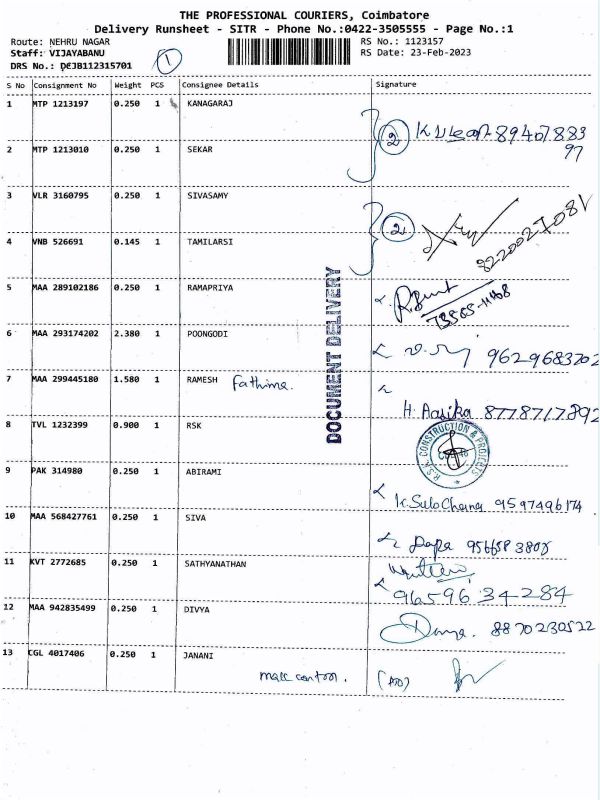 THE PROFESSIONAL COURIERS, Coimbatore
Delivery Runsheet - SITR - Phone No.:0422-3505555 - Page No.:1
Route: NEHRU NAGAR RS No.: 1123157
Staff: VIJAYABANU RS Date: 23-Feb-2023
DRS No.: DEJB112315701 1
S No Consignment No Weight PCS Consignee Details Signature
1 MTP 1213197 0.250 1 KANAGARAJ
2 8940788397
2 MTP 1213010 0.250 1 SEKAR
3 VLR 3160795 0.250 1 SIVASAMY
2 8220027081
4 VNB 526691 0.145 1 TAMILARSI
DOCUMENT DELIVERY
5 MAA 289102186 0.250 1 RAMAPRIYA
6 MAA 293174202 2.380 1 POONGODI
9629683702
7 MAA 299445180 1.580 1 RAMESH Fathima.
H. Aasika 8778717892
8 TVL 1232399 0.900 1 RSK
R.S.K CONSTRUCTION & PROJECTS
9 PAK 314980 0.250 1 ABIRAMI
K. SuloChana 9597496174
10 MAA 568427761 0.250 1 SIVA
11 KVT 2772685 0.250 1 SATHYANATHAN
9659634284
12 MAA 942835499 0.250 1 DIVYA
Divya. 8870230522
13 CGL 4017406 0.250 1 JANANI